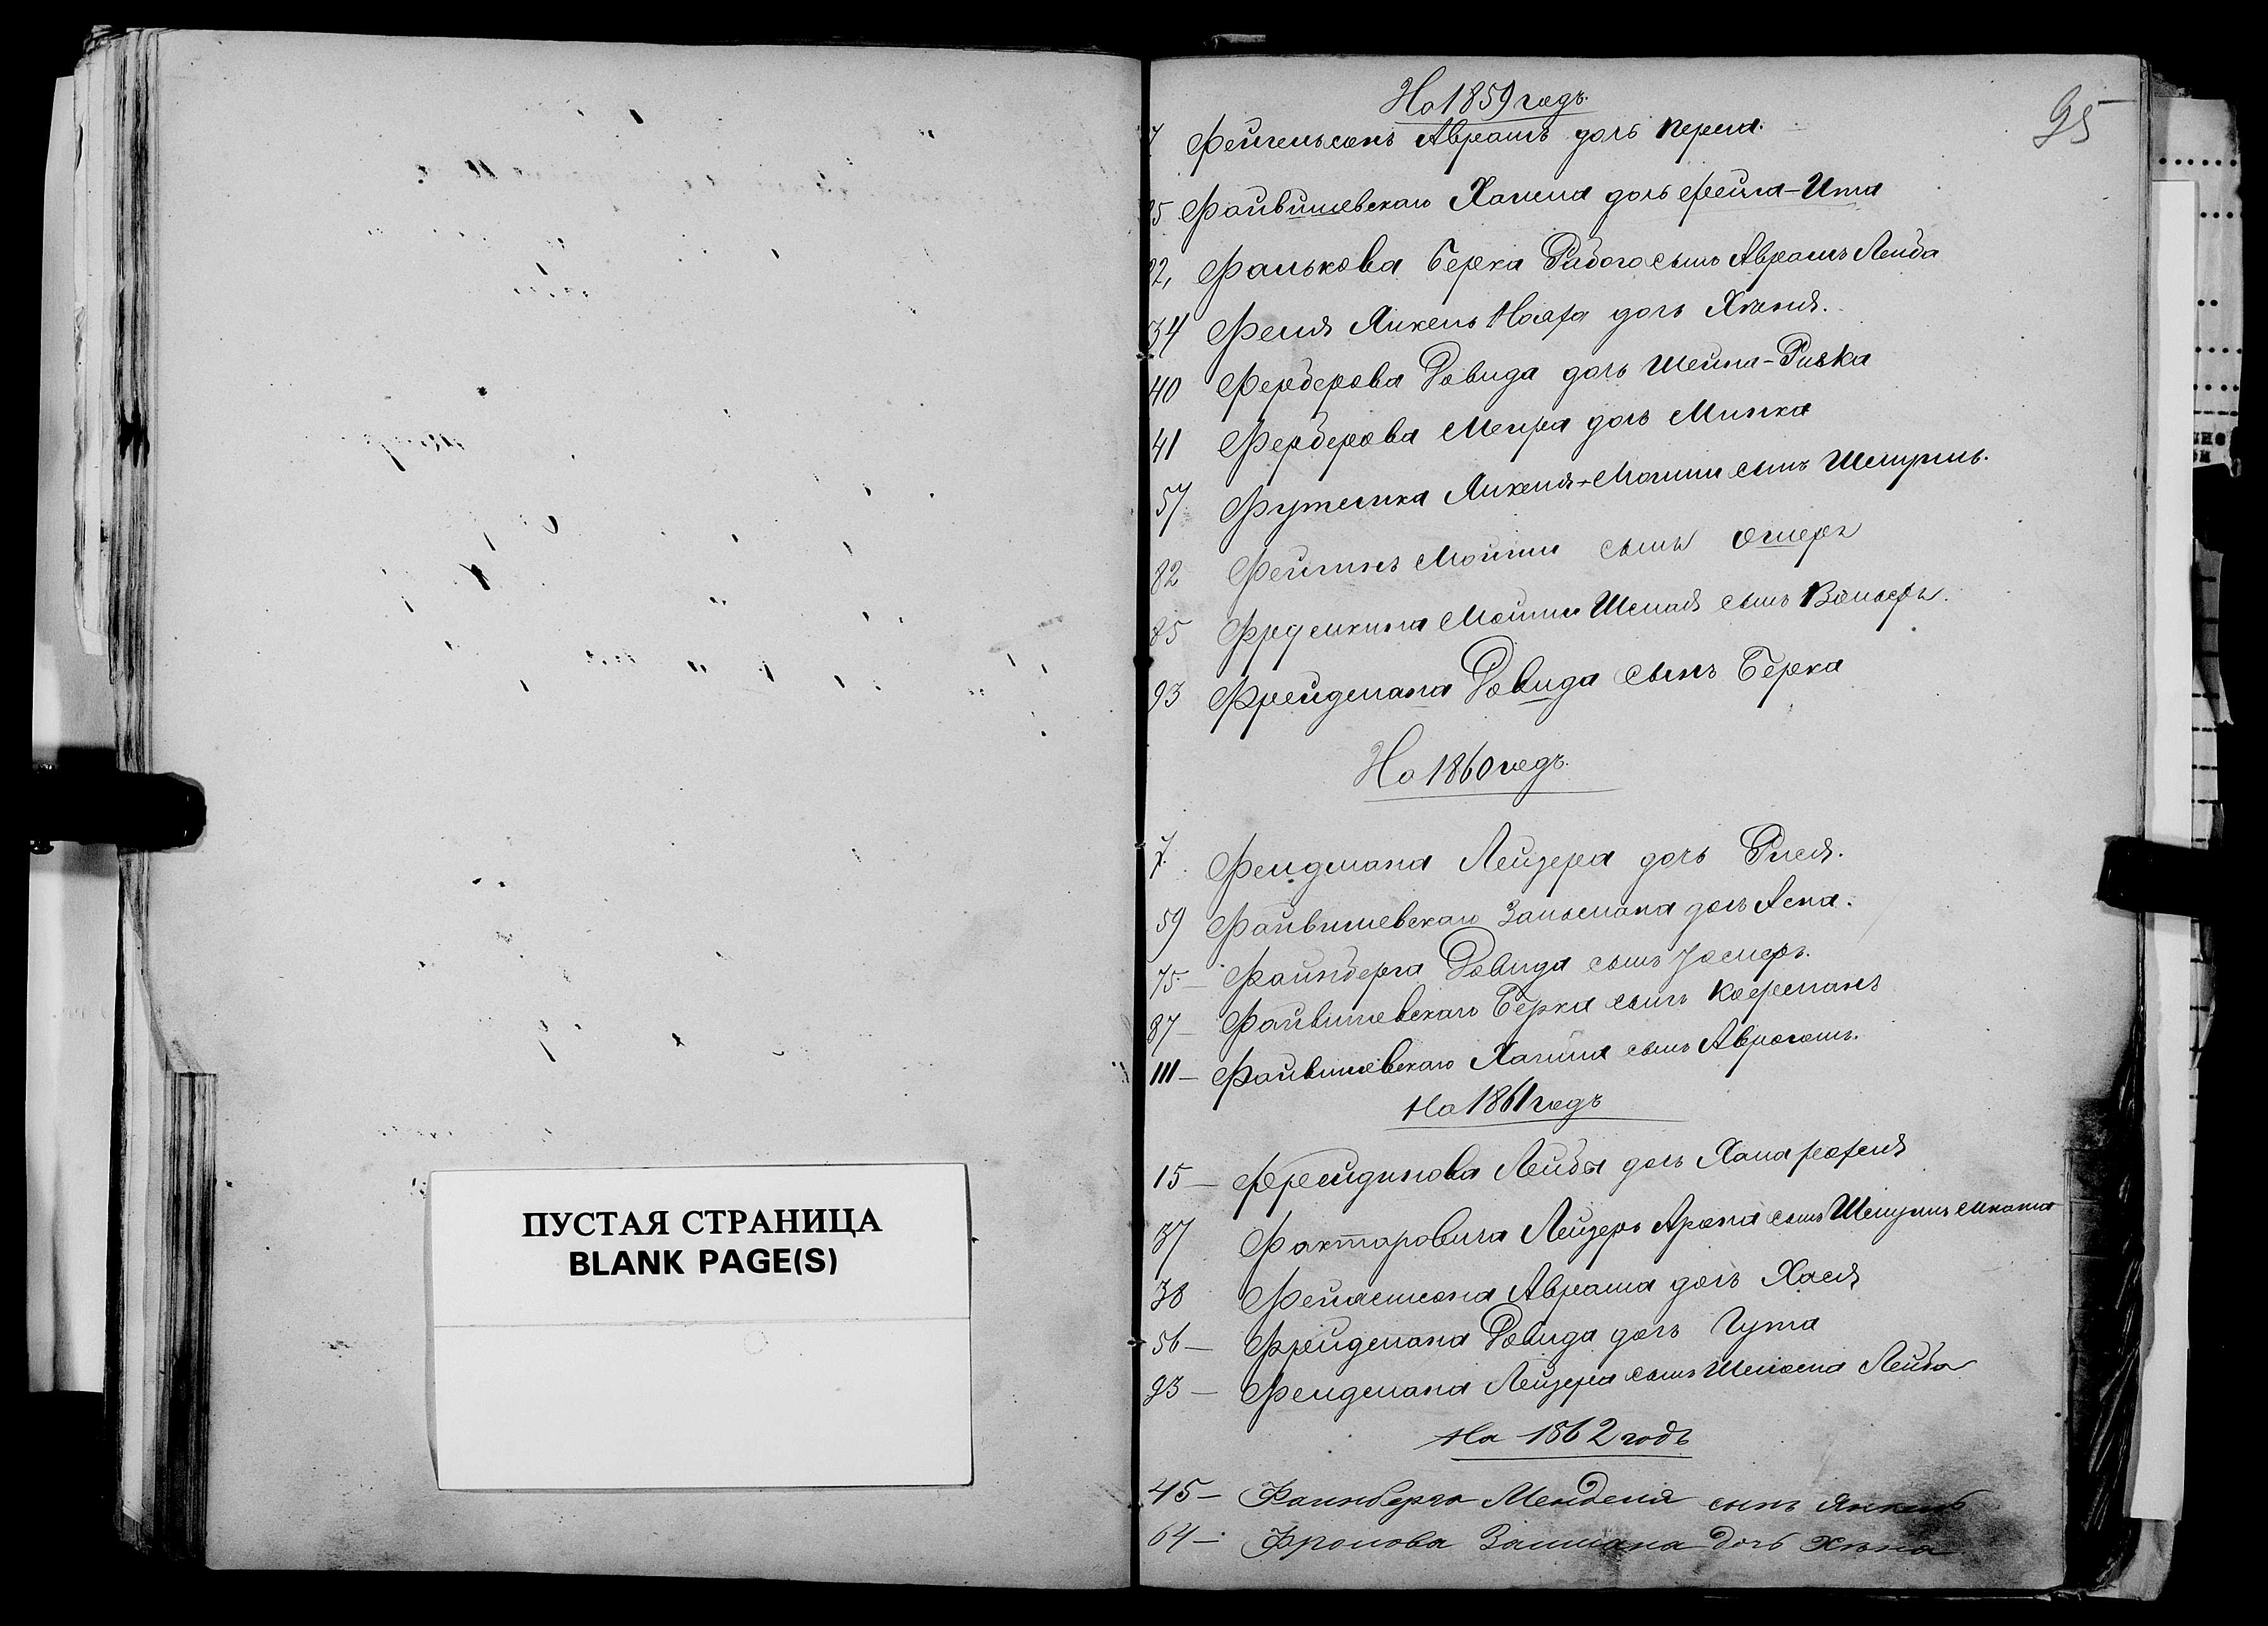 ПУСТАЯ СТРАНИЦА
BLANK PAGE(S)
95
На 1859 годъ.
7 Фейгельсонъ Авраамъ дочь Перла.
25 Файвишевскаго Ханена дочь Фейга-Ита
22, Фалькова Берка сынъ Авраамъ Лейба
34 Феля Янкель дочь Хьеня.
40 Ферберова Довида дочь Шейна-Ривка
41 Ферберова Меира дочь Минка
57 Янкеля-Мовши сынъ Шмуйль.
82 Фейгинъ Мовши сынъ Ошеръ
85 Фрумкина Мовши Шмая сынъ
93 Фрейдмана Довида сынъ Берка
На 1860 годъ.
7. Фельдмана Лейзера дочь Рися.
59 Файвишевскаго Залмана дочь Асна.
75 — Файнберга Довида сынъ
87 — Файвишевскаго Берка сынъ Кофманъ
111 — Файвишевскаго Хаима сынъ Аврогомъ.
На 1861 годъ
15 — Лейба дочь Хана
37 Факторовича Лейзеръ Арона сынъ Шмуилъ
38 Авраама дочь Хася
56 — Фрейдмана Довида дочь Гута
93 — Фельдмана Лейзера сынъ Лейба
На 1862 годъ
45 — Файнберга Менделя сынъ Янкель
64 — Фролова Залмана дочь Хьена